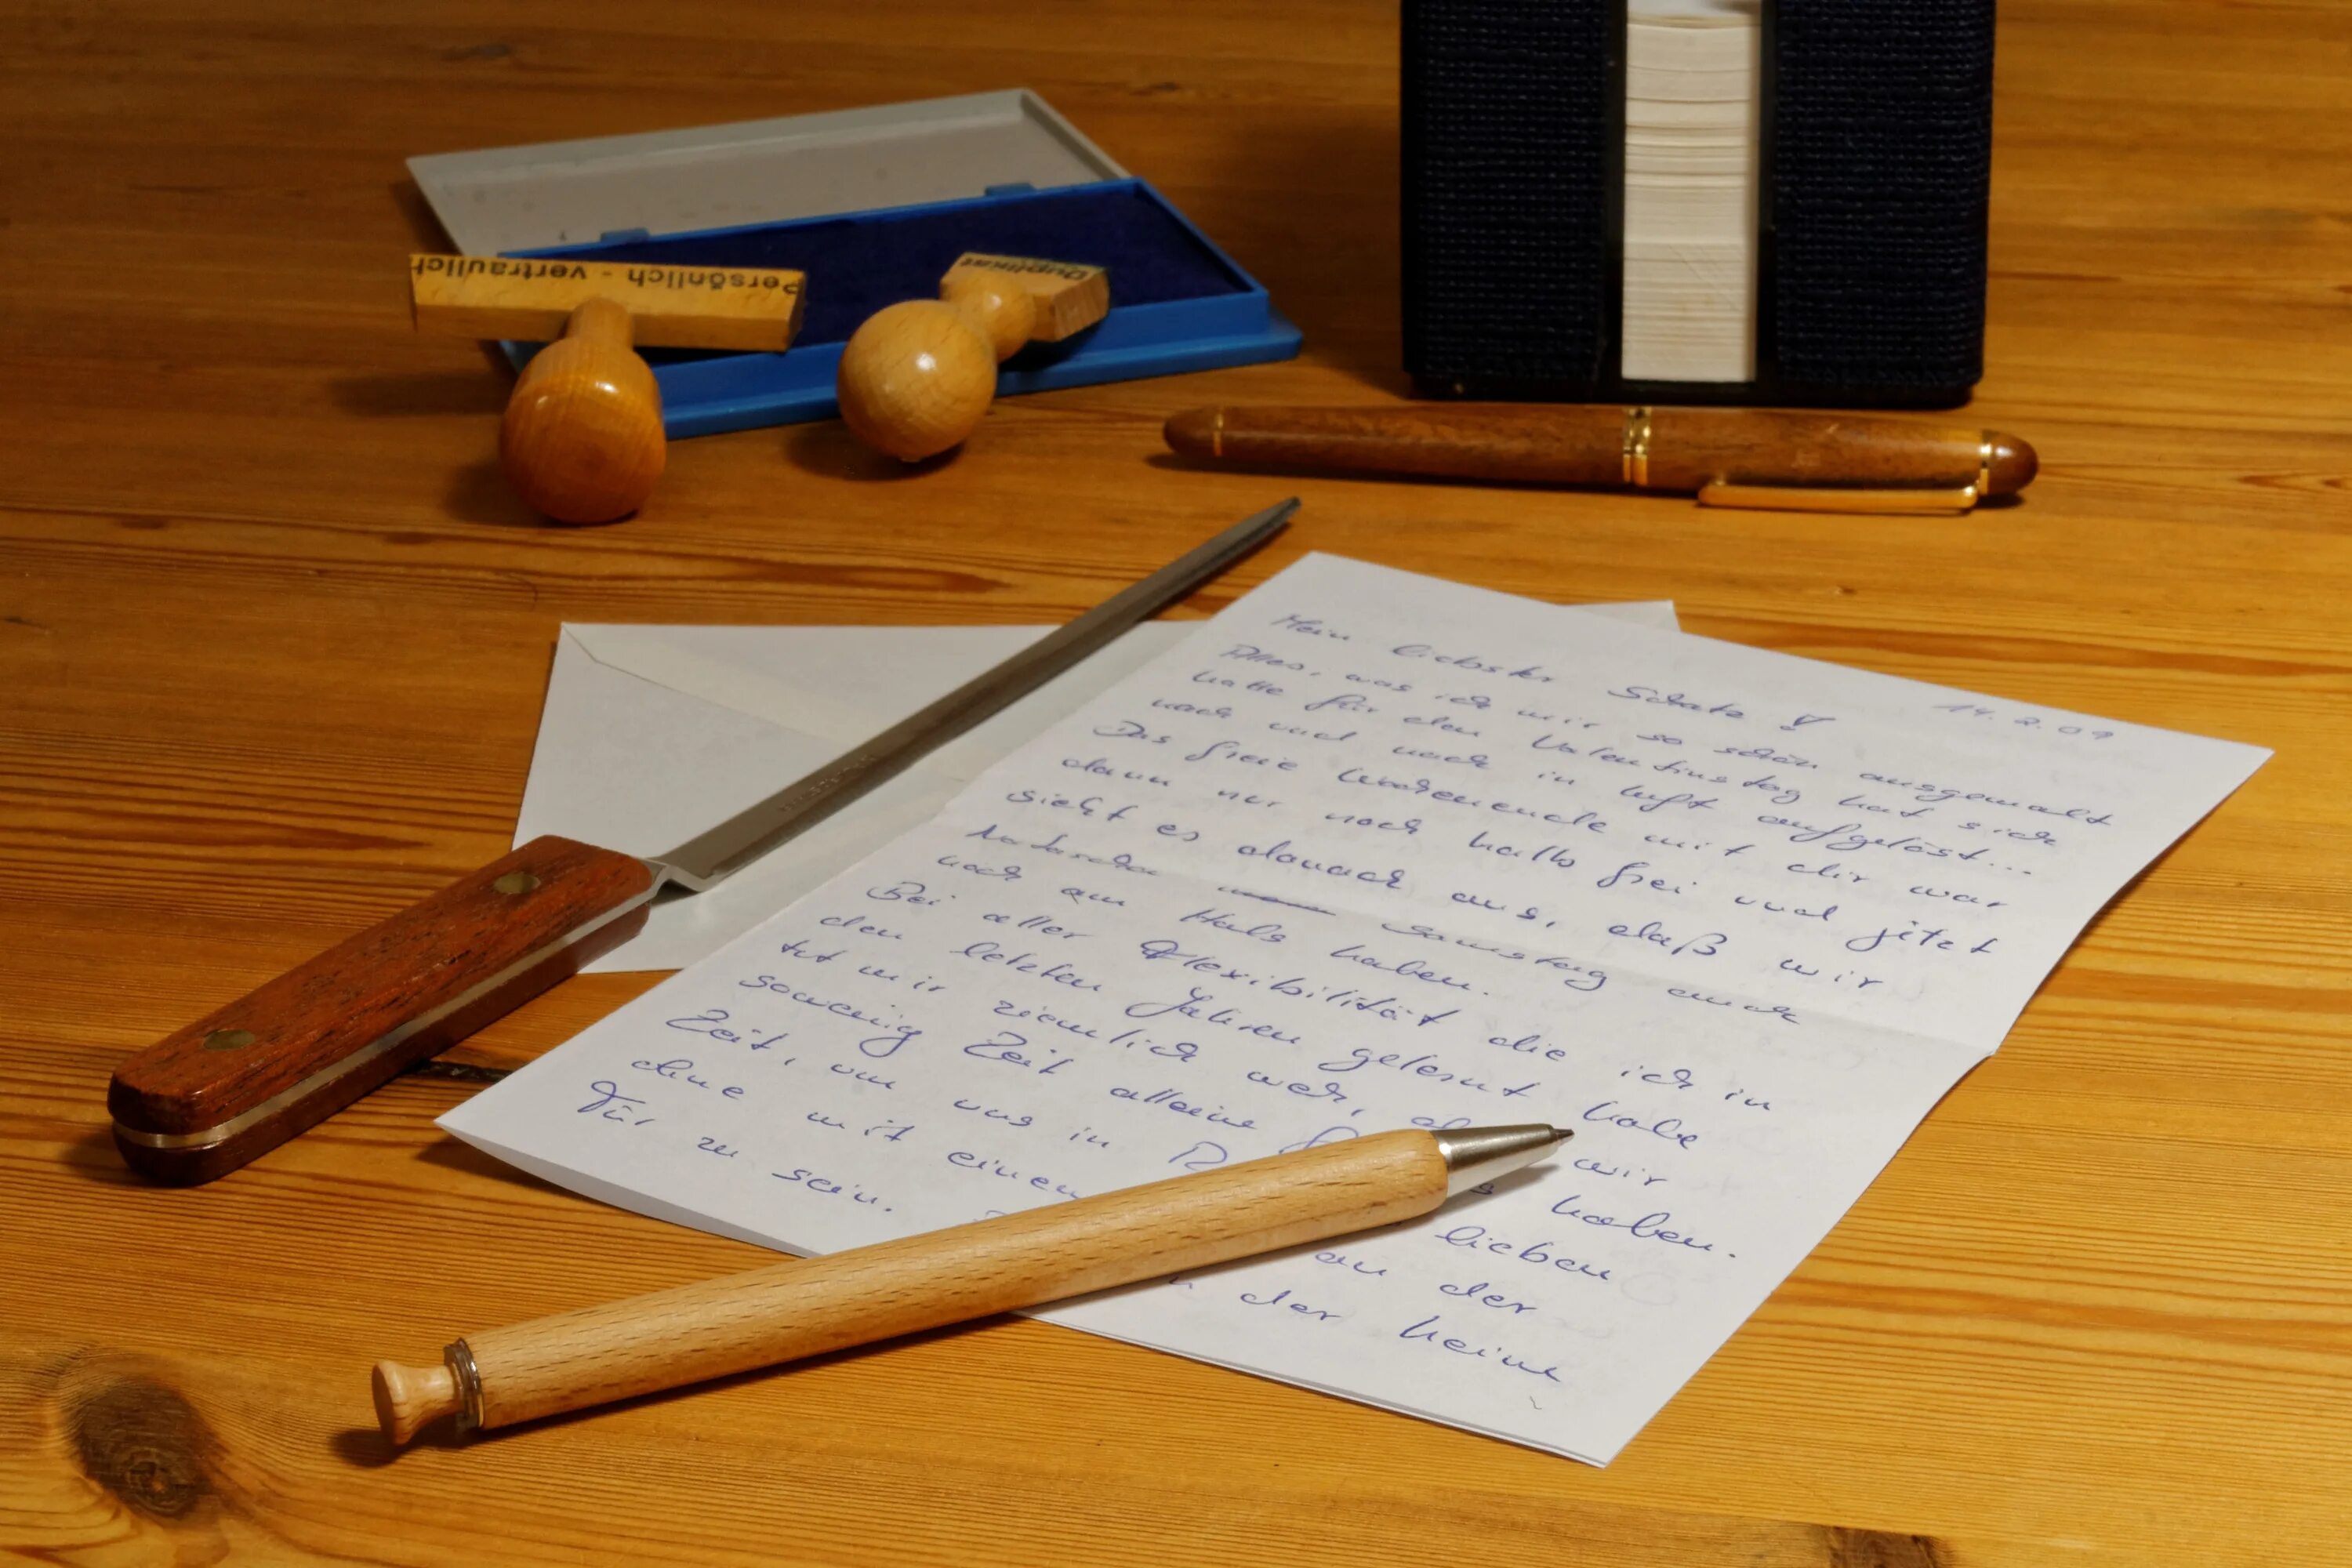 Persönlich - vertraulich
Duplikat
14.2.09
Mein liebster Schatz
Alles, was ich mir so schön ausgemalt
hatte für den Valentinstag hat sich
nach und nach in Luft aufgelöst...
Das freie Wochenende mit dir war
dann nur noch halb frei und jetzt
sieht es danach aus, daß wir
Samstag auch
noch am Hals haben.
Bei aller Flexibilität die ich in
den letzten Jahren gelernt habe
tut mir ziemlich weh, wir
sowenig Zeit alleine haben.
Zeit, um uns in lieben
ohne mit einem an der
Tür zu sein. der